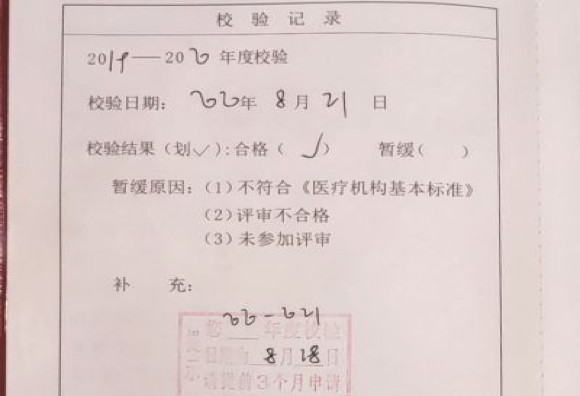 校验记录
2019——2020年度校验
校验日期: 2020年8月21日
校验结果(划√):合格(√) 暂缓( )
暂缓原因:(1)不符合《医疗机构基本标准》
(2)评审不合格
(3)未参加评审
补 充:
您 年度校验
日期为8月18日
请提前3个月申请